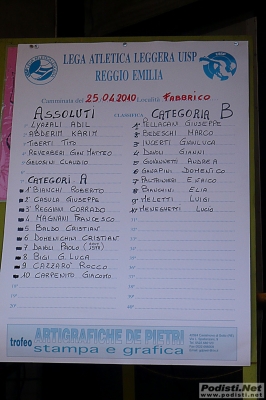 LEGA ATLETICA LEGGERA UISP
REGGIO EMILIA
Camminata del 25.04.2010 Località FABBRICO
ASSOLUTI
LYAZALI ADIL
ABDERIM KARIM
TIBERTI TITO
REVERBERI GIAN MATTEO
GELOSINI CLAUDIO
CATEGORI A
1° BIANCHI ROBERTO
2° CASULA GIUSEPPE
3° REGGIANI CORRADO
4 MAGNANI FRANCESCO
5 BALDO CRISTIAN
6 DOMENICHINI CRISTIAN
7 DAVOLI PAOLO
8 BIGI G. LUCA
9 CAZZARÒ ROCCO
10 CARPENITO GIACOMO
CLASSIFICA CATEGORIA B
1° PELLACANI GIUSEPPE
2° BEDESCHI MARCO
3° INCERTI GIANLUCA
4° DAVOLI GIANNI
5° GIOVANNETTI ANDREA
6° GANAPINI DOMENICO
7° PALTRINIERI ENRICO
8° BIANCHINI ELIA
9° MELETTI LUIGI
10° MENEGHETTI LUCIO
trofeo ARTIGRAFICHE DE PIETRI
stampa e grafica
Podisti.Net
www.podisti.net